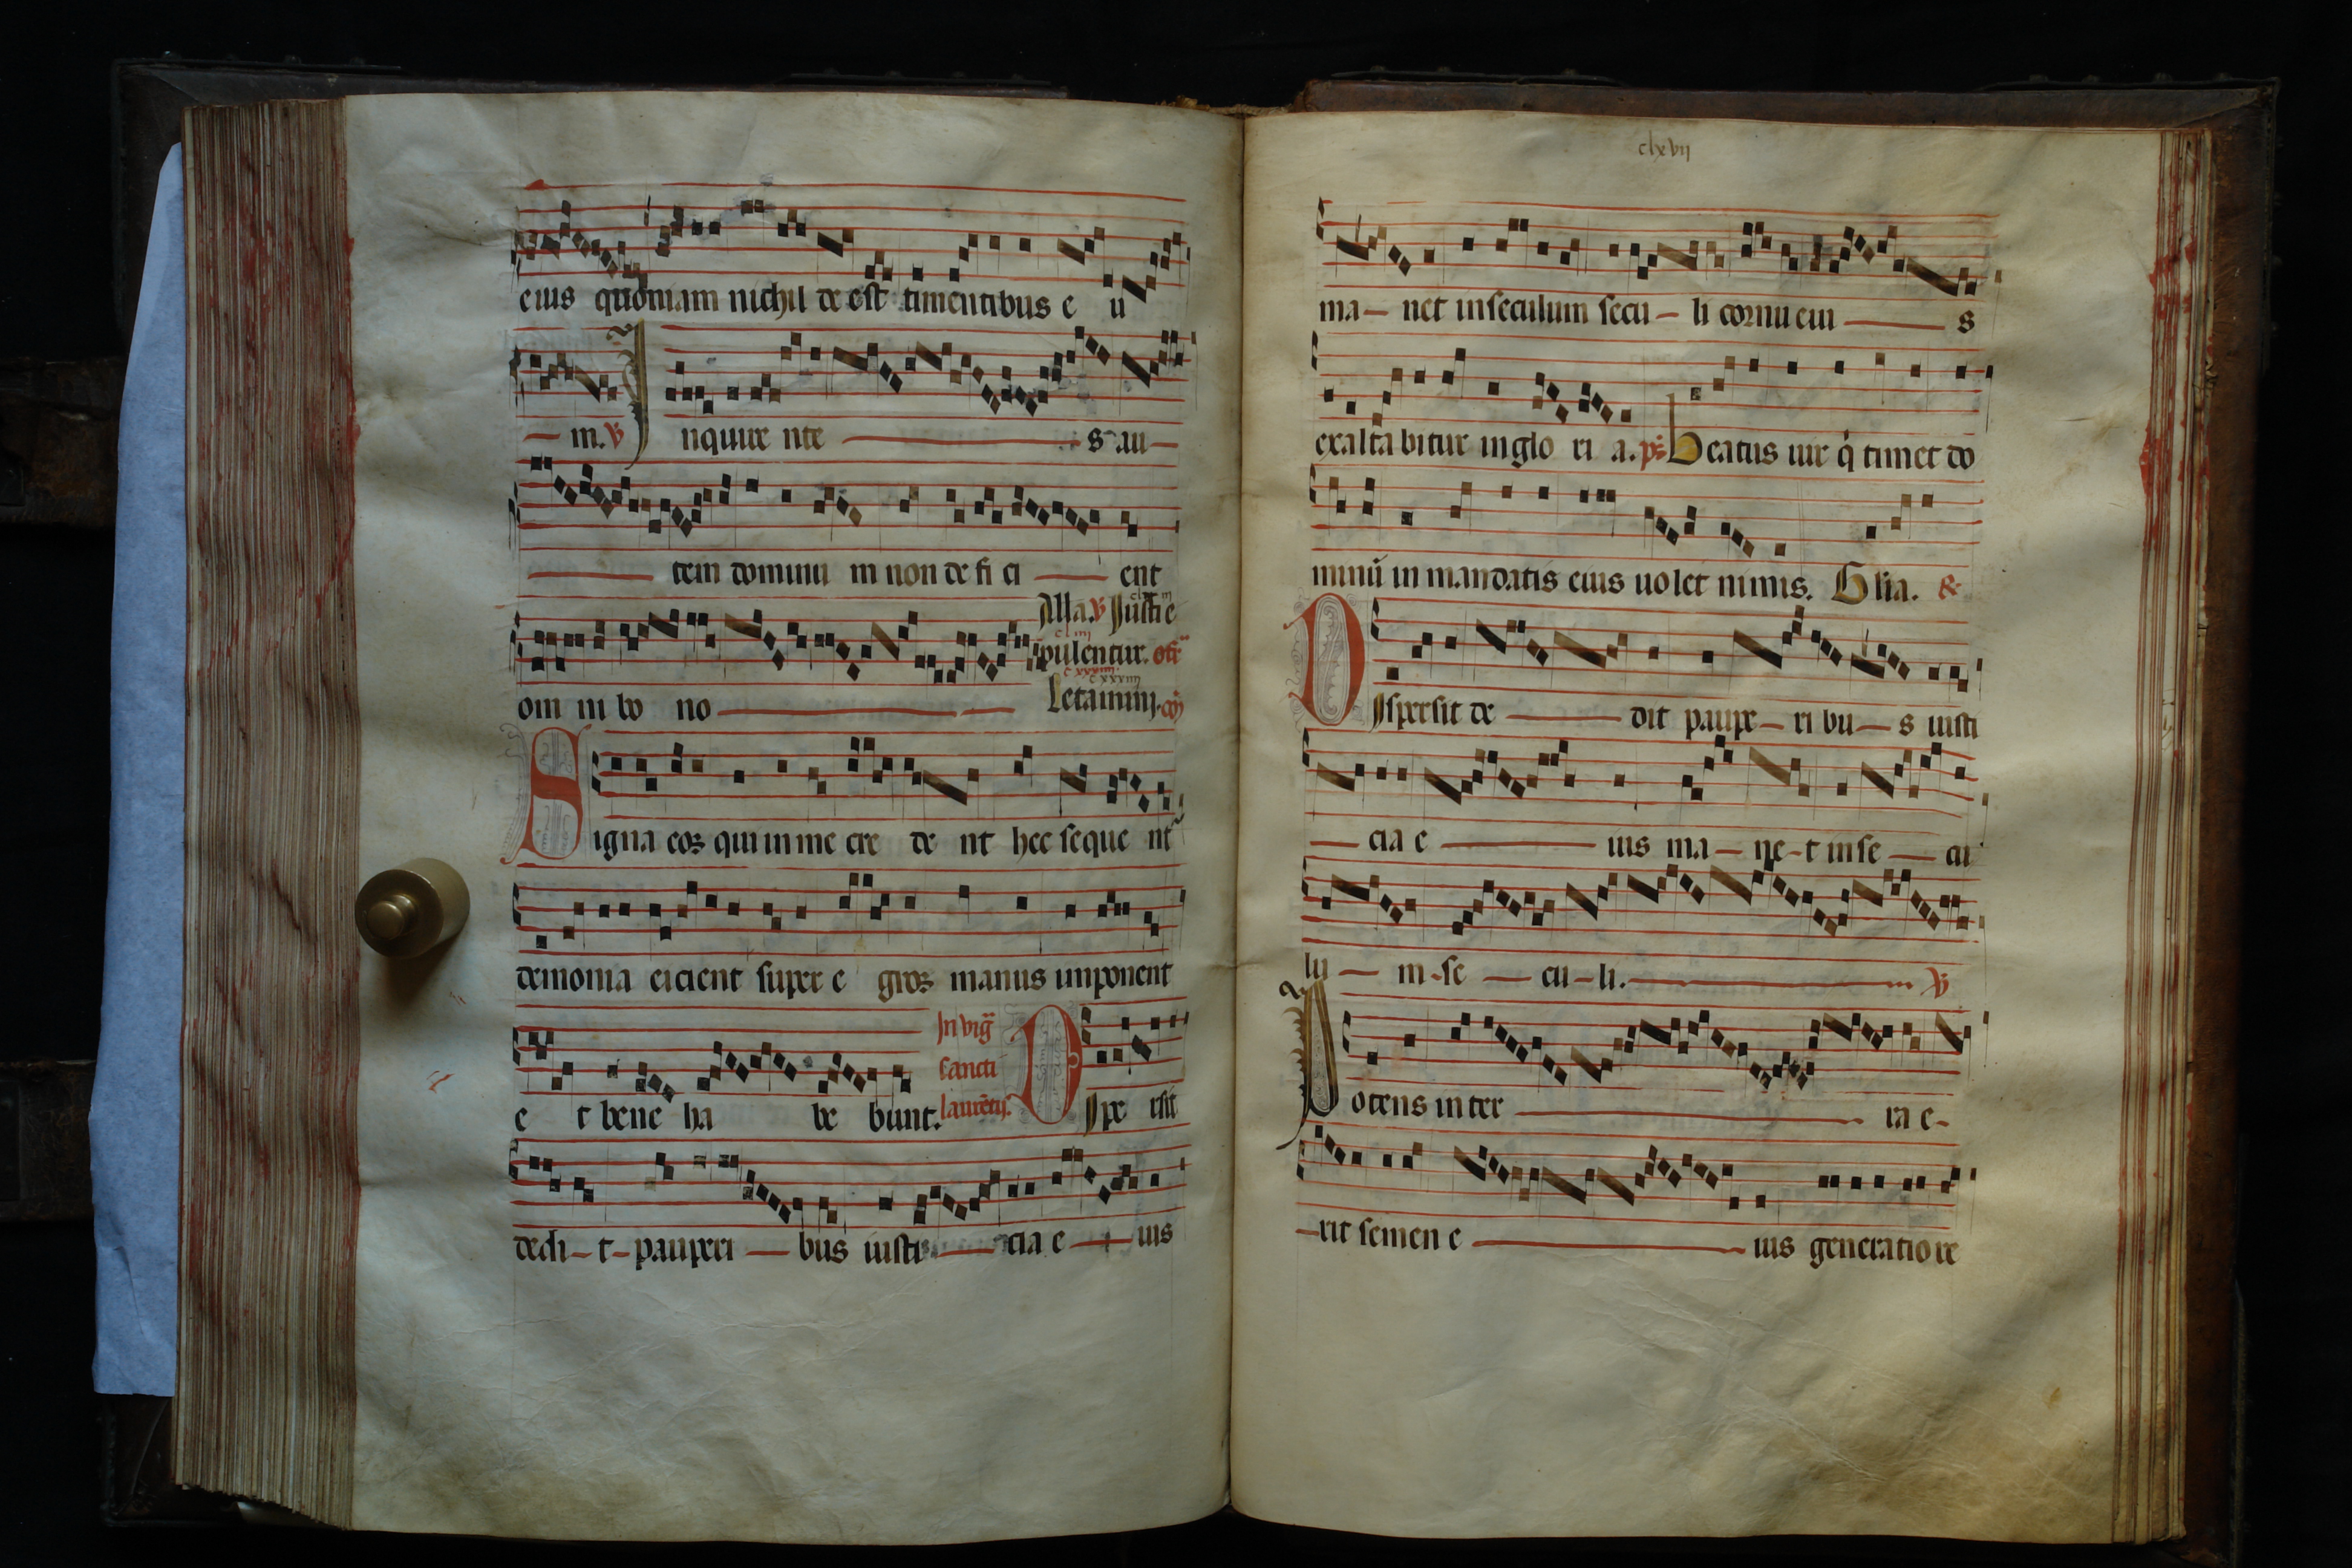 eius quoniam nichil de est timentibus e u
— m. ℣ Inquire nte — s au —
— tem dominu m non de fi ci — ent
Alla. ℣ Justi e
pulentur. off
om ni bo no —
Letamini. cō
Signa eoꝝ qui in me cre de nt hec seque nt᷑
demonia eicient super e groꝝ manus imponent
In vig̃
sancti
laurētij.
e t bene ha be bunt. Dispe rsit
dedi – t – pauperi — bus iusti — cia e — ius
clxvij
ma — net in seculum secu — li cornu eiu — s
exalta bitur in glo ri a. p̄s. beatus uir q̇ timet do
minū in mandatis eius uolet nimis. Glia. &
Dispersit de — dit paupe — ri bu — s iusti
— cia e — ius ma — ne – t in se — cu
lu — m – se — cu – li. — ℣
Potens in ter — ra e –
– rit semen e — ius generatio re